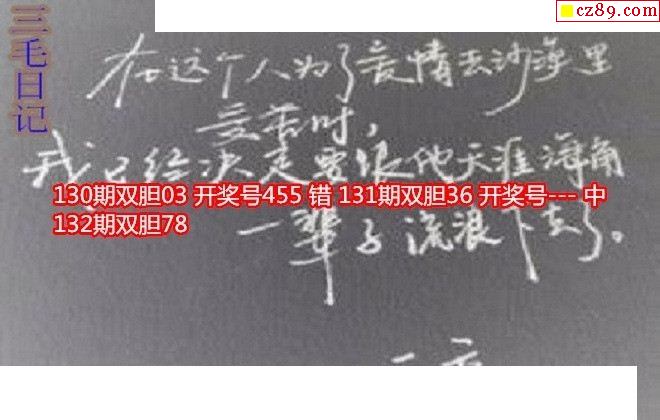 cz89.com
三毛日记
在这个人为了爱情去沙漠里
受苦时，
我已经决定要跟他天涯海角
130期双胆03 开奖号455 错 131期双胆36 开奖号--- 中
132期双胆78
一辈子流浪下去了。